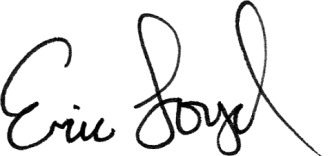 Eric Loyd